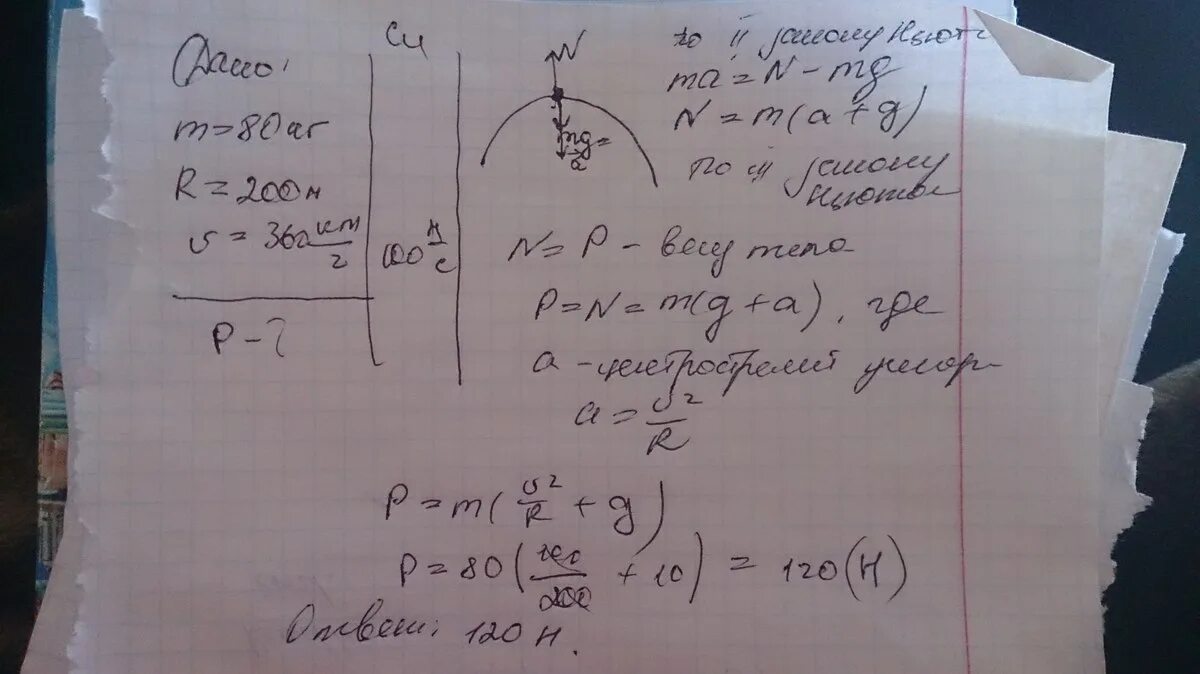 Дано:
m=80 кг
R=200 м
v=360 км/г
P-?
Си
100 м/с
N
mg
a
по II закону Ньют
ma=N-mg
N=m(a+g)
по III закону
Ньютон
N=P-весу тела
P=N=m(g+a), где
a-центростремит ускор-
a=v²/R
P=m(v²/R+g)
P=80(100/200+10)=120(H)
Ответ: 120 Н.